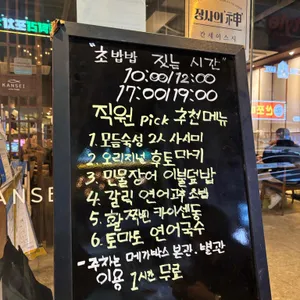 "초밥밥 짓는 시간"
10:00/12:00
17:00/19:00
직원 Pick 추천메뉴
1. 모듬숙성 2人 사시미
2. 오리지널 후토마키
3. 민물장어 이불덮밥
4. 갈릭 연어괴초밥
5. 활 쭈삣 카이센동
6. 토마토 연어국수
- 주차는 메가박스 본관, 별관
이용 1시간 무료
장사의神
칸세이스시
KANSEI